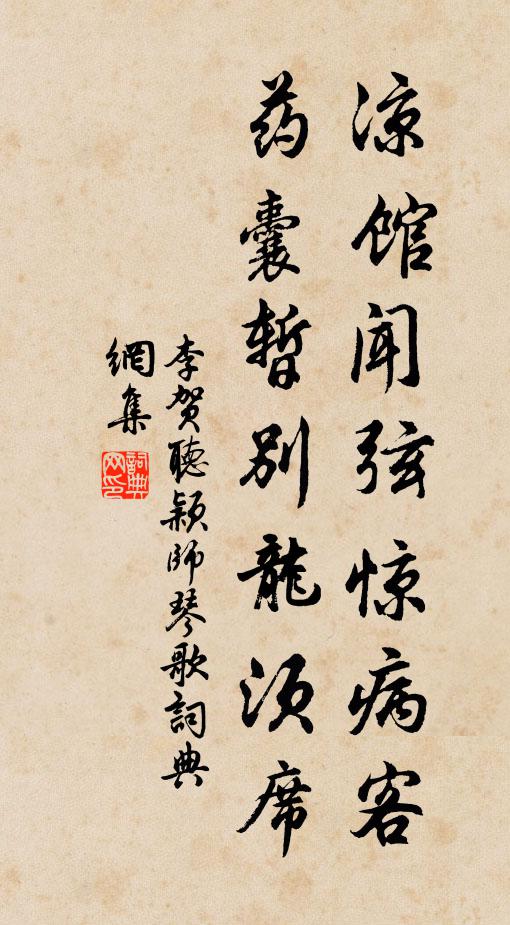 凉馆闻弦惊病客
药囊暂别龍须席
李贺聴颖师琴歌詞典
網集
詞典网印